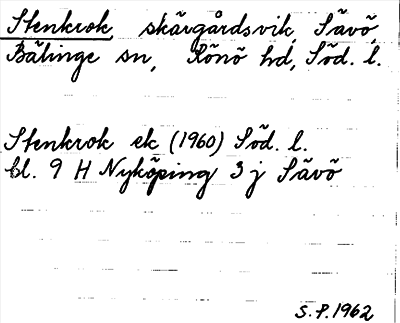 Stenkrok, skärgårdsvik, Sävö,
Bälinge sn, Rönö hd, Söd. l.
Stenkrok ek (1960) Söd. l.
bl. 9 H Nyköping 3 j Sävö
S.P. 1962